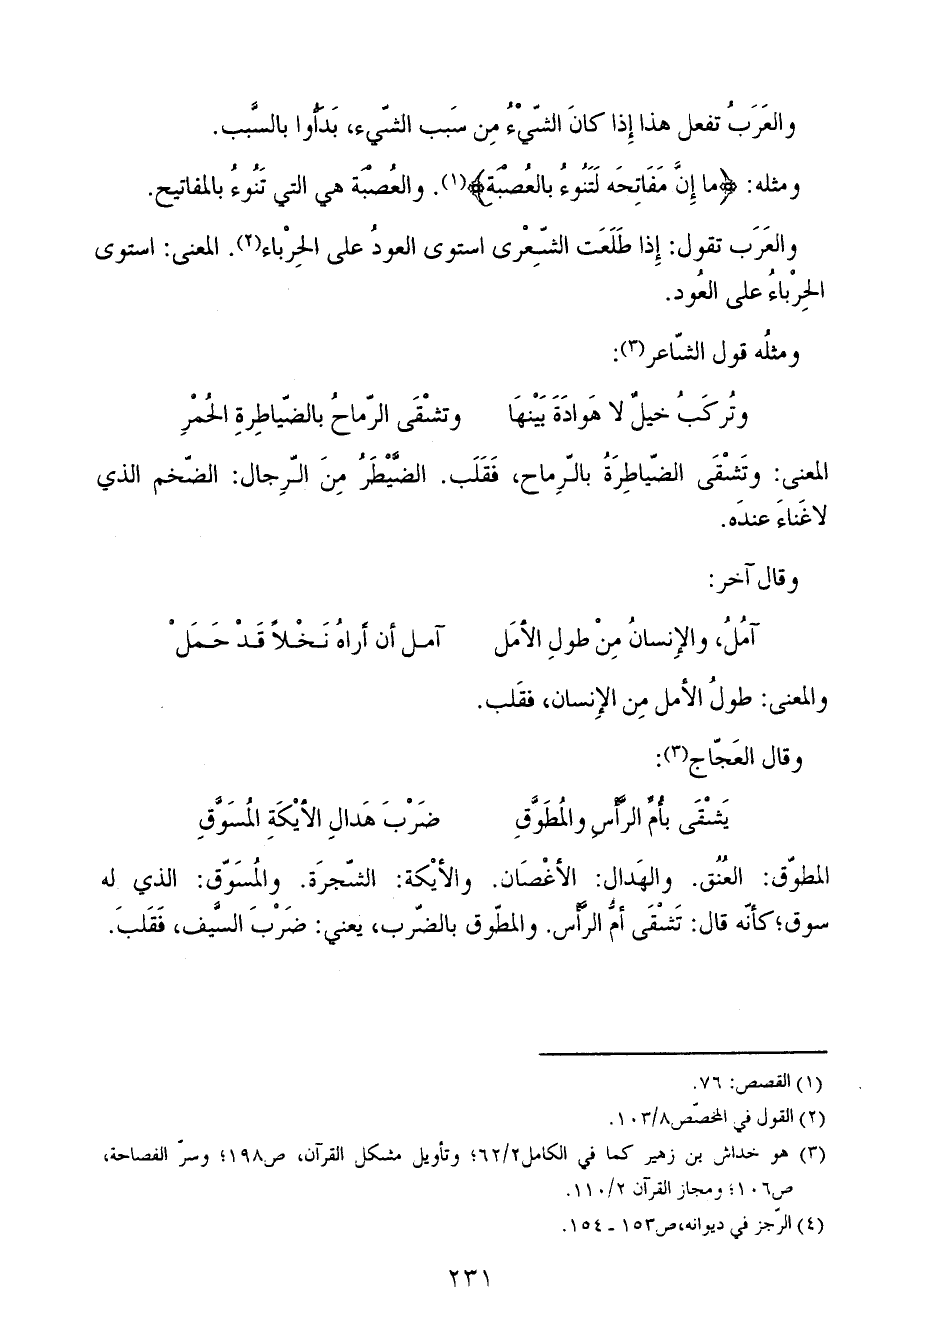 والعَرَبُ تفعل هذا إِذا كانَ الشّيْءُ مِن سَبَب الشّيء، بَدَأُوا بالسَّبب.
ومثله: ﴿ما إِنَّ مَفَاتِحَه لَتَنوءُ بالعُصبَة﴾(١). والعُصبَة هي التي تَنُوءُ بالمفاتيح.
والعَرَب تقول: إِذا طَلَعَت الشّعْرى استوى العودُ على الحِرْباء(٢). المعنى: استوى
الحِرْباءُ على العُود.
ومثلُه قول الشّاعر(٣):
وتُركَبُ خيلٌ لا هَوادَةَ بَيْنهَا وتشْقَى الرّماحُ بالضّياطِرةِ الحُمْرِ
المعنى: وتَشْقَى الضّياطِرَةُ بالرّماح، فَقَلَب. الضَّيْطَرُ مِنَ الرّجال: الضّخم الذي
لاغَناءَ عندَه.
وقال آخر:
آمُلُ، والإِنسانُ مِنْ طولِ الأَمَل آمل أن أراهُ نَخْلاً قَدْ حَمَلْ
والمعنى: طولُ الأمل مِن الإِنسان، فقَلب.
وقال العَجّاج(٣):
يَشْقَى بأُمِّ الرَّأْسِ والمُطَوَّقِ ضَرْبَ هَدالِ الأَيْكَةِ المُسَوَّقِ
المطوّق: العُنُق. والهَدال: الأغْصَان. والأيْكة: الشّجرَة. والمُسَوّق: الذي له
سوق؛كأنّه قال: تَشْقَى أمُّ الرَّأْس. والمطّوق بالضّرب، يعني: ضَرْبَ السَّيف، فَقَلبَ.
(١) القصص: ٧٦.
(٢) القول في المخصّص٨/١٠٣.
(٣) هو خداش بن زهير كما في الكامل٢/٦٢؛ وتأويل مشكل القرآن، ص١٩٨؛ وسرّ الفصاحة،
ص١٠٦؛ ومجاز القرآن ٢/١١٠.
(٤) الرّجز في ديوانه،ص١٥٣ ـ ١٥٤.
٢٣١